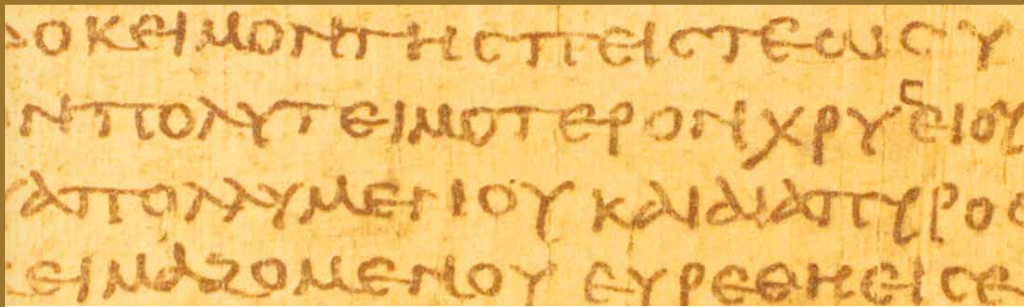 ΟΚΕΙΜΟΝΤΗϹΠΕΙϹΤΕωϹΥ
ΝΠΟΛΥΤΕΙΜΟΤΕΡΟΝΧΡΥϹΕΙΟΥ
ΑΠΟΛΛΥΜΕΝΟΥ ΚΑΙΔΙΑΠΥΡΟϹ
ΕΙΜΑΖΟΜΕΝΟΥ ΕΥΡΕΘΗΕΙϹΕ